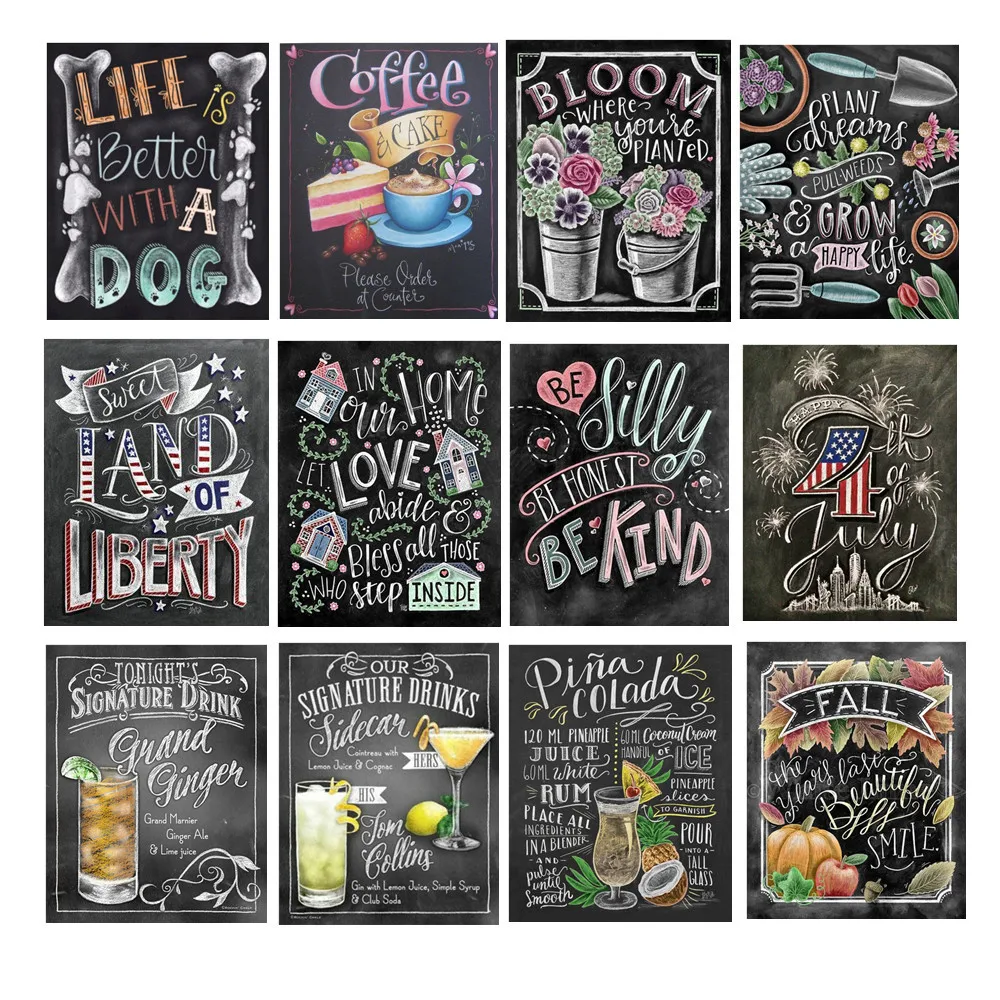 LIFE is
Better
WITH A
DOG
Coffee
& CAKE
Please Order
at Counter
BLOOM
WHERE
you're
PLANTED
PLANT
dreams
PULL WEEDS
& GROW
a HAPPY life.
Sweet
LAND
OF
LIBERTY
IN
our HOME
LET LOVE
abide &
Bless all THOSE
WHO step INSIDE
BE Silly
BE HONEST
BE KIND
HAPPY
4th
of
July
TONIGHT'S
SIGNATURE DRINK
Grand
Ginger
Grand Marnier
Ginger Ale
& Lime juice
OUR
SIGNATURE DRINKS
Sidecar
Cointreau with
Lemon Juice & Cognac
HERS
HIS
Tom
Collins
Gin with Lemon Juice, Simple Syrup
& Club Soda
Piña
COLADA
120 ML PINEAPPLE
JUICE
60 ML white
RUM
PLACE ALL
INGREDIENTS
IN A BLENDER
-AND-
pulse
until
smooth
60 ML Coconut Cream
HANDFUL OF ICE
PINEAPPLE
slices
TO GARNISH
POUR
-INTO A-
TALL
GLASS
FALL
the
Year's last
Beautiful
SMILE.